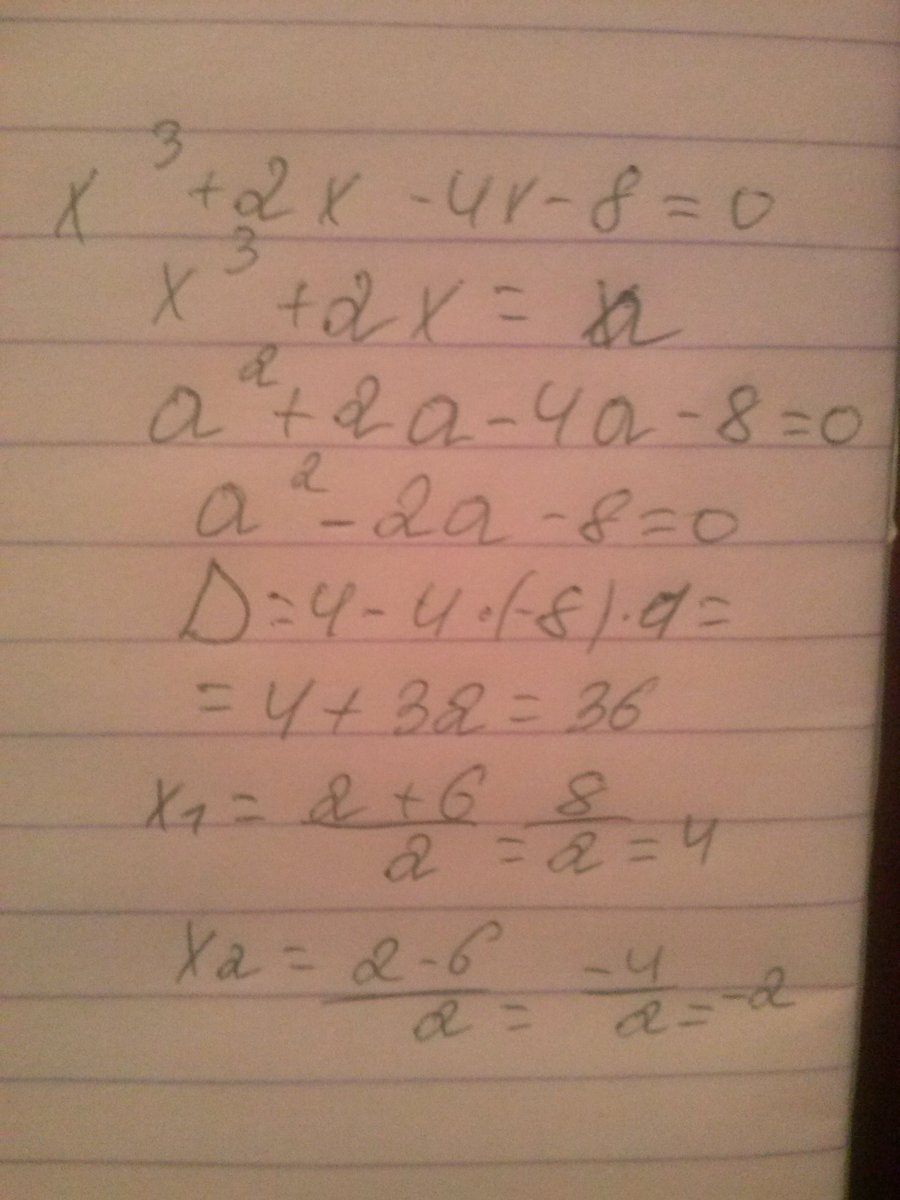 x³ + 2x - 4x - 8 = 0
x³ + 2x = a
a² + 2a - 4a - 8 = 0
a² - 2a - 8 = 0
D = 4 - 4 · (-8) · 1 =
= 4 + 32 = 36
x₁ = (2 + 6)/2 = 8/2 = 4
x₂ = (2 - 6)/2 = -4/2 = -2